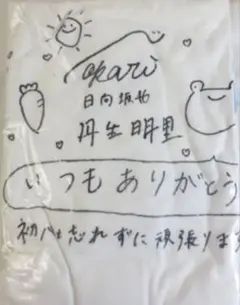 akari
日向坂46
丹生明里
いつもありがとう
初心を忘れずに頑張ります